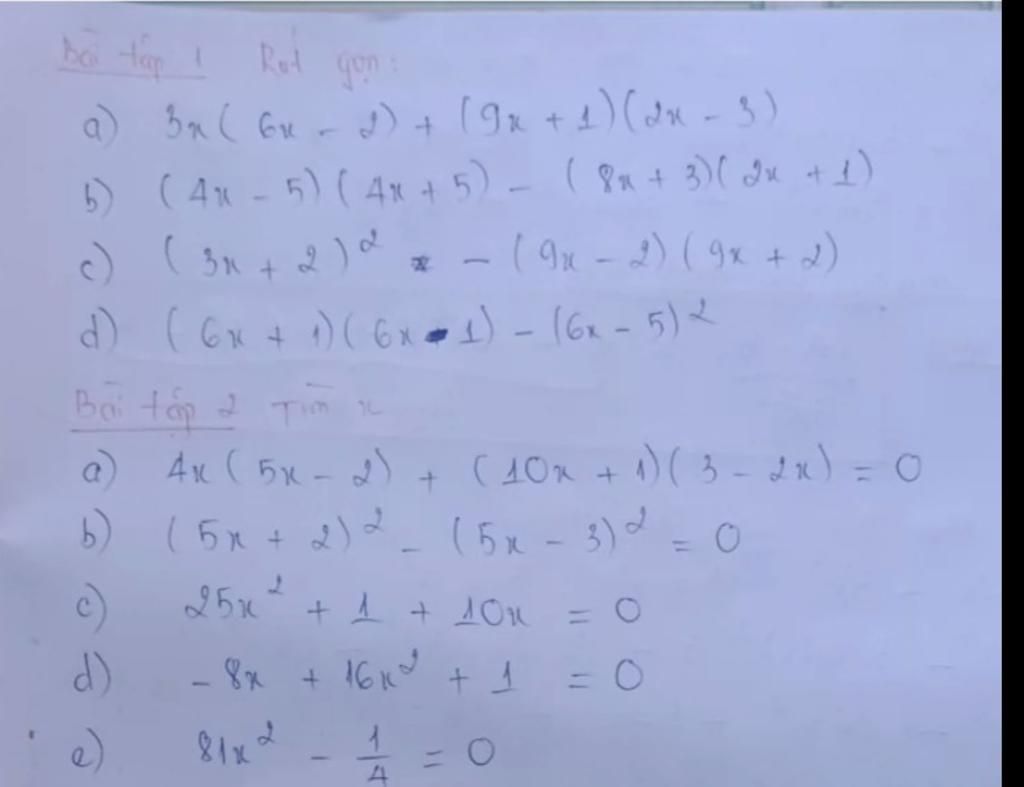 Bài tập 1 Rút gọn:
a) 3x( 6x - 2) + (9x + 1)(2x - 3)
b) (4x - 5)(4x + 5) - (8x + 3)(2x + 1)
c) (3x + 2)² - (9x - 2)(9x + 2)
d) (6x + 1)(6x - 1) - (6x - 5)²
Bài tập 2 Tìm x
a) 4x( 5x - 2) + (10x + 1)(3 - 2x) = 0
b) (5x + 2)² - (5x - 3)² = 0
c) 25x² + 1 + 10x = 0
d) - 8x + 16x² + 1 = 0
e) 81x² - 1/4 = 0